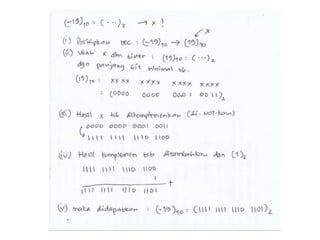 (-19)10 = (...)2 → x !
x
(i) Positipkan DEC = (-19)10 → (19)10
(ii) Ubah x dlm biner : (19)10 = (...)2
dgn panjang bit minimal 16.
(19)10 = xxxx xxxx xxxx xxxx
= (0000 0000 0001 0011)2
(iii) Hasil x tsb dikomplemenkan (di-NOT-kan)
0000 0000 0001 0011
1111 1111 1110 1100
(iv) Hasil komplemen tsb ditambahkan dgn (1)2
1111 1111 1110 1100
1
+
1111 1111 1110 1101
(v) maka didapatkan : (-19)10 = (1111 1111 1110 1101)2